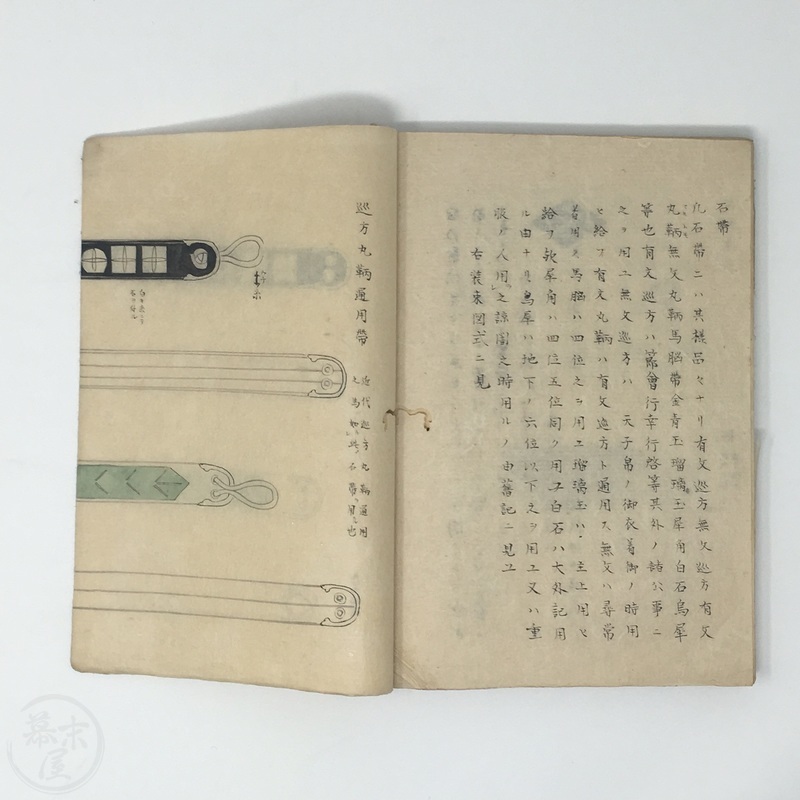 石帯
凡石帯ニハ其様品々ナリ有文巡方無文巡方有文
丸鞆無文丸鞆馬脳帯金青玉瑠璃玉犀角白石烏犀
等也有文巡方ハ節會行幸行啓等其外ノ諸公事ニ
之ヲ用ユ無文巡方ハ 天子帛ノ御衣着御ノ時用
ヒ給フ有文丸鞆ハ有文巡方ト通用ス無文ハ尋常
着用ス馬脳ハ四位之ヲ用ユ瑠璃玉ハ 主上用ヒ
給フ 犀角ハ四位五位同ク用ユ白石ハ大外記用
ル由ナリ烏犀ハ地下ノ六位以下之ヲ用ユ又ハ重
服ノ人用之諒闇之時用ルノ由舊記ニ見ユ
右装束図式ニ見
巡方丸鞆通用帯
近代巡方丸鞆通用
之為如此石帯ヲ用ル也
幕末屋